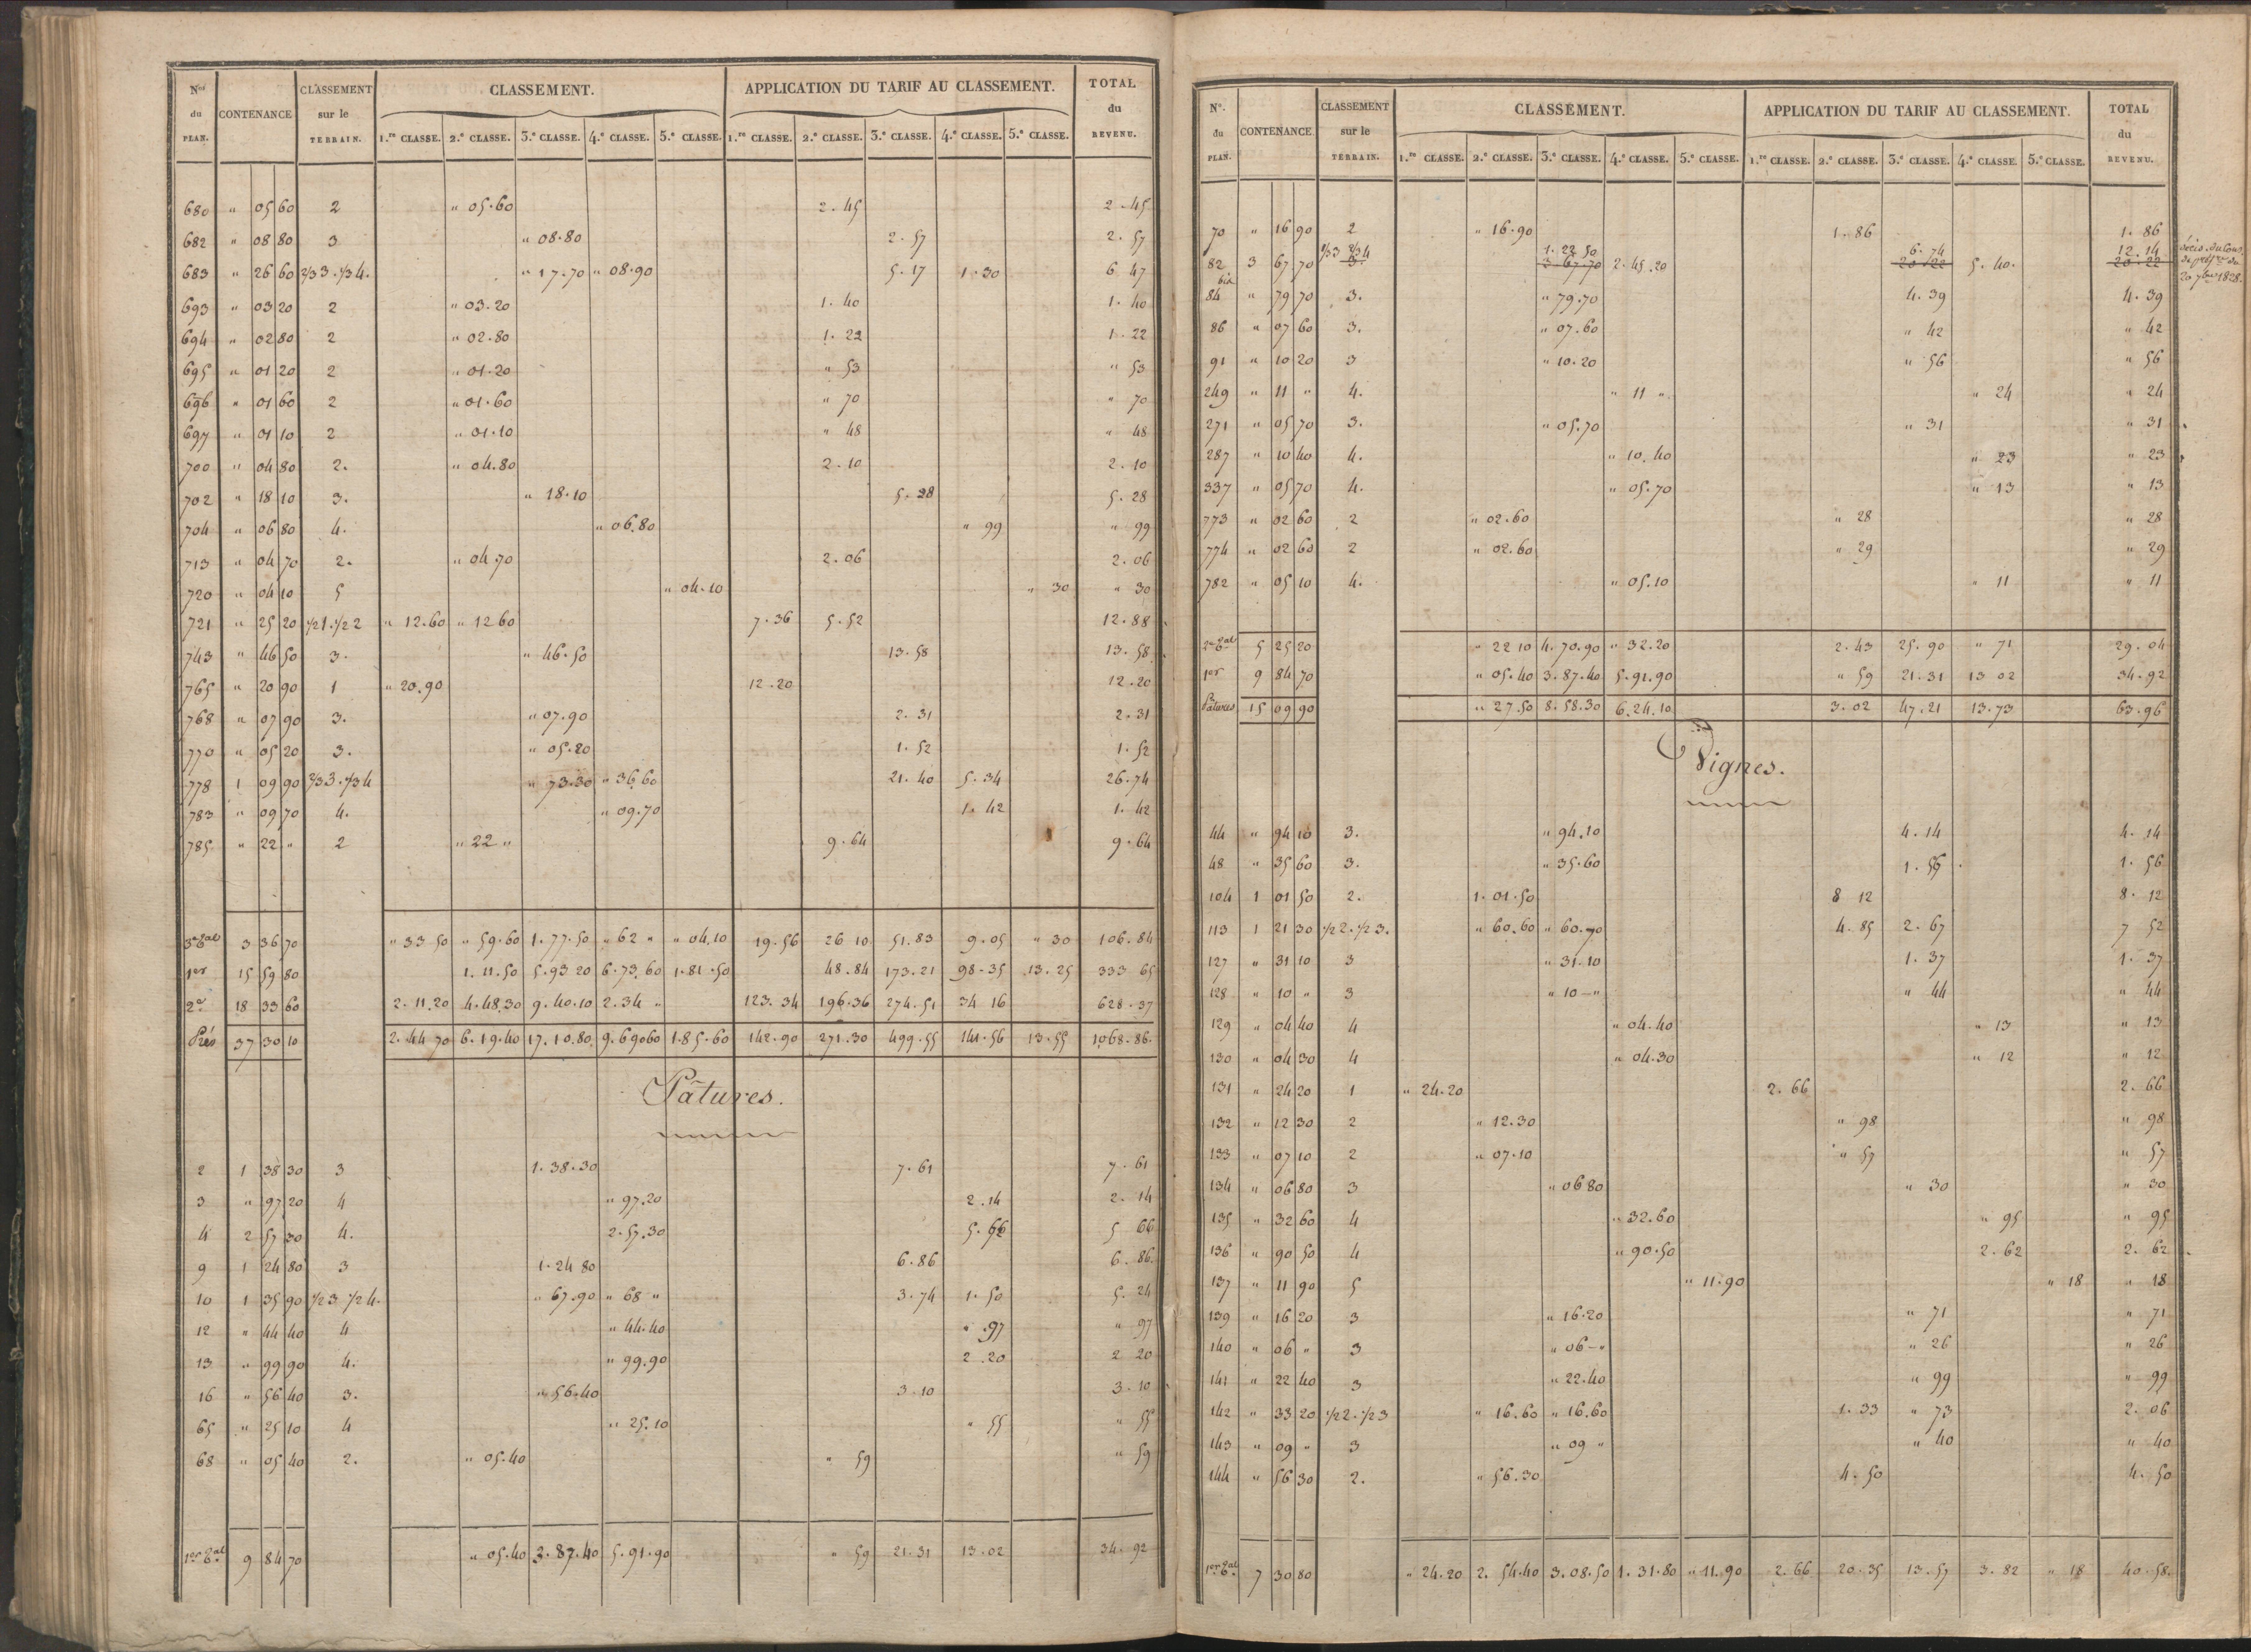 Nos du PLAN. CONTENANCE CLASSEMENT sur le TERRAIN. CLASSEMENT. APPLICATION DU TARIF AU CLASSEMENT. TOTAL du REVENU.
1.re CLASSE. 2.e CLASSE. 3.e CLASSE. 4.e CLASSE. 5.e CLASSE. 1.re CLASSE. 2.e CLASSE. 3.e CLASSE. 4.e CLASSE. 5.e CLASSE.
680 " 05 60 2 " 05.60 2.45 2.45
682 " 08 80 3 " 08.80 2.57 2.57
683 " 26 60 2/3 3. 1/3 4. " 17.70 " 08.90 5.17 1.30 6 47
693 " 03 20 2 " 03.20 1.40 1.40
694 " 02 80 2 " 02.80 1.22 1.22
695 " 01 20 2 " 01.20 " 53 " 53
696 " 01 60 2 " 01.60 " 70 " 70
697 " 01 10 2 " 01.10 " 48 " 48
700 " 04 80 2. " 04.80 2.10 2.10
702 " 18 10 3. " 18.10 5.28 5.28
704 " 06 80 4. " 06.80 " 99 " 99
713 " 04 70 2. " 04.70 2.06 2.06
720 " 04 10 5 " 04.10 " 30 " 30
721 " 25 20 1/2 1. 1/2 2 " 12.60 " 12 60 7.36 5.52 12.88
743 " 46 50 3. " 46.50 13.58 13.58
765 " 20 90 1 " 20.90 12.20 12.20
768 " 07 90 3. " 07.90 2.31 2.31
770 " 05 20 3. " 05.20 1.52 1.52
778 1 09 90 2/3 3. 1/3 4 " 73.30 " 36.60 21.40 5.34 26.74
783 " 09 70 4. " 09.70 1.42 1.42
785 " 22 " 2 " 22 " 9.64 9.64
3e Tal 3 36 70 " 33 50 " 59.60 1.77.50 " 62 " " 04.10 19.56 26 10 51.83 9.05 " 30 106.84
1er 15 59 80 1.11.50 5.93 20 6.73.60 1.81.50 48.84 173.21 98.35 13.25 333 65
2e 18 33 60 2.11.20 4.48.30 9.40.10 2.34 " 123.34 196.36 274.51 34 16 628.37
Prés 37 30 10 2.44 70 6.19.40 17.10.80 9.69.60 1.85.60 142.90 271.30 499.55 141.56 13.55 1068.86
Pâtures.
2 1 38 30 3 1.38.30 7.61 7.61
3 " 97 20 4 " 97.20 2.14 2.14
4 2 57 30 4. 2.57.30 5.66 5 66
9 1 24 80 3 1.24 80 6.86 6.86
10 1 35 90 1/2 3 1/2 4. " 67.90 " 68 " 3.74 1.50 5.24
12 " 44 40 4 " 44.40 " .97 " 97
13 " 99 90 4. " 99.90 2.20 2 20
16 " 56 40 3. " 56.40 3.10 3.10
65 " 25 10 4 " 25.10 " 55 " 55
68 " 05 40 2. " 05.40 " 59 " 59
1er Tal 9 84 70 " 05.40 3.87.40 5.91.90 " 59 21.31 13.02 34.92
No. du PLAN. CONTENANCE. CLASSEMENT sur le TERRAIN. CLASSEMENT. APPLICATION DU TARIF AU CLASSEMENT. TOTAL du REVENU.
1.re CLASSE. 2.e CLASSE. 3.e CLASSE. 4.e CLASSE. 5.e CLASSE. 1.re CLASSE. 2.e CLASSE. 3.e CLASSE. 4.e CLASSE. 5.e CLASSE.
70 " 16 90 2 " 16.90 1.86 1.86
1/3 3 2/3 4 1.22 50 6.74 12.14
82 bis 3 67 70 3. 3.67 70 2.45.20 20.22 5.40. 20.22
20 7bre 1828.
84 " 79 70 3. " 79.70 4.39 4.39
86 " 07 60 3. " 07.60 " 42 " 42
91 " 10 20 3 " 10.20 " 56 " 56
249 " 11 " 4. " 11 " " 24 " 24
271 " 05 70 3. " 05.70 " 31 " 31
287 " 10 40 4. " 10.40 " 23 " 23
337 " 05 70 4. " 05.70 " 13 " 13
773 " 02 60 2 " 02.60 " 28 " 28
774 " 02 60 2 " 02.60 " 29 " 29
782 " 05 10 4. " 05.10 " 11 " 11
2e Tal 5 25 20 " 22 10 4.70.90 " 32.20 2.43 25.90 " 71 29.04
1er 9 84 70 " 05.40 3.87.40 5.91.90 " 59 21.31 13 02 34.92
Pâtures 15 09 90 " 27.50 8.58.30 6.24.10 3.02 47.21 13.73 63.96
Vignes.
44 " 94 10 3. " 94.10 4.14 4.14
48 " 35 60 3. " 35.60 1.56 1.56
104 1 01 50 2. 1.01.50 8 12 8.12
113 1 21 30 1/2 2. 1/2 3. " 60.60 " 60.70 4.85 2.67 7 52
127 " 31 10 3 " 31.10 1.37 1.37
128 " 10 " 3 " 10-" " 44 " 44
129 " 04 40 4 " 04.40 " 13 " 13
130 " 04 30 4 " 04.30 " 12 " 12
131 " 24 20 1 " 24.20 2.66 2.66
132 " 12 30 2 " 12.30 " 98 " 98
133 " 07 10 2 " 07.10 " 57 " 57
134 " 06 80 3 " 06 80 " 30 " 30
135 " 32 60 4 " 32.60 " 95 " 95
136 " 90 50 4 " 90.50 2.62 2.62
137 " 11 90 5 " 11.90 " 18 " 18
139 " 16 20 3 " 16.20 " 71 " 71
140 " 06 " 3 " 06-" " 26 " 26
141 " 22 40 3 " 22.40 " 99 " 99
142 " 33 20 1/2 2. 1/2 3 " 16.60 " 16.60 1.33 " 73 2.06
143 " 09 " 3 " 09 " " 40 " 40
144 " 56 30 2. " 56.30 4.50 4.50
1er Tal 7 30 80 " 24.20 2.54.40 3.08.50 1.31.80 " 11.90 2.66 20.35 13.57 3.82 " 18 40.58.